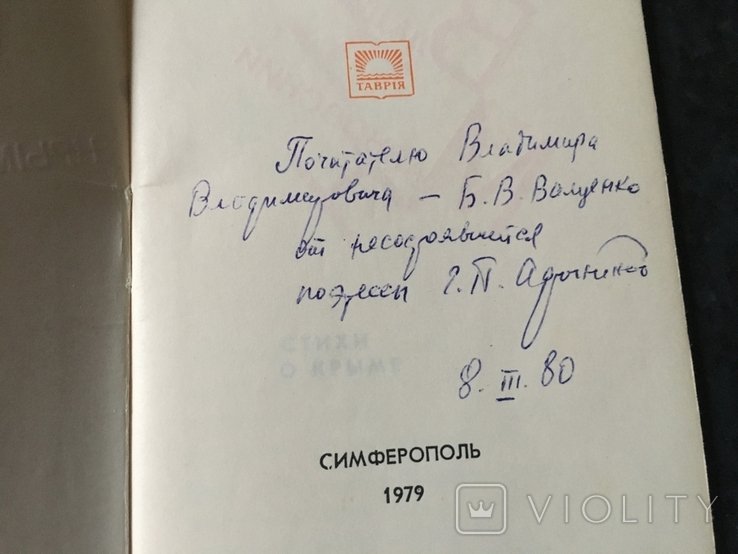 ТАВРІЯ
Почитателю Владимира
Владимировича – Б. В. Волценко
от несостоявшейся
поэтессы Г. П.
8. III. 80
СТИХИ
О КРЫМЕ
СИМФЕРОПОЛЬ
1979
VIOLITY